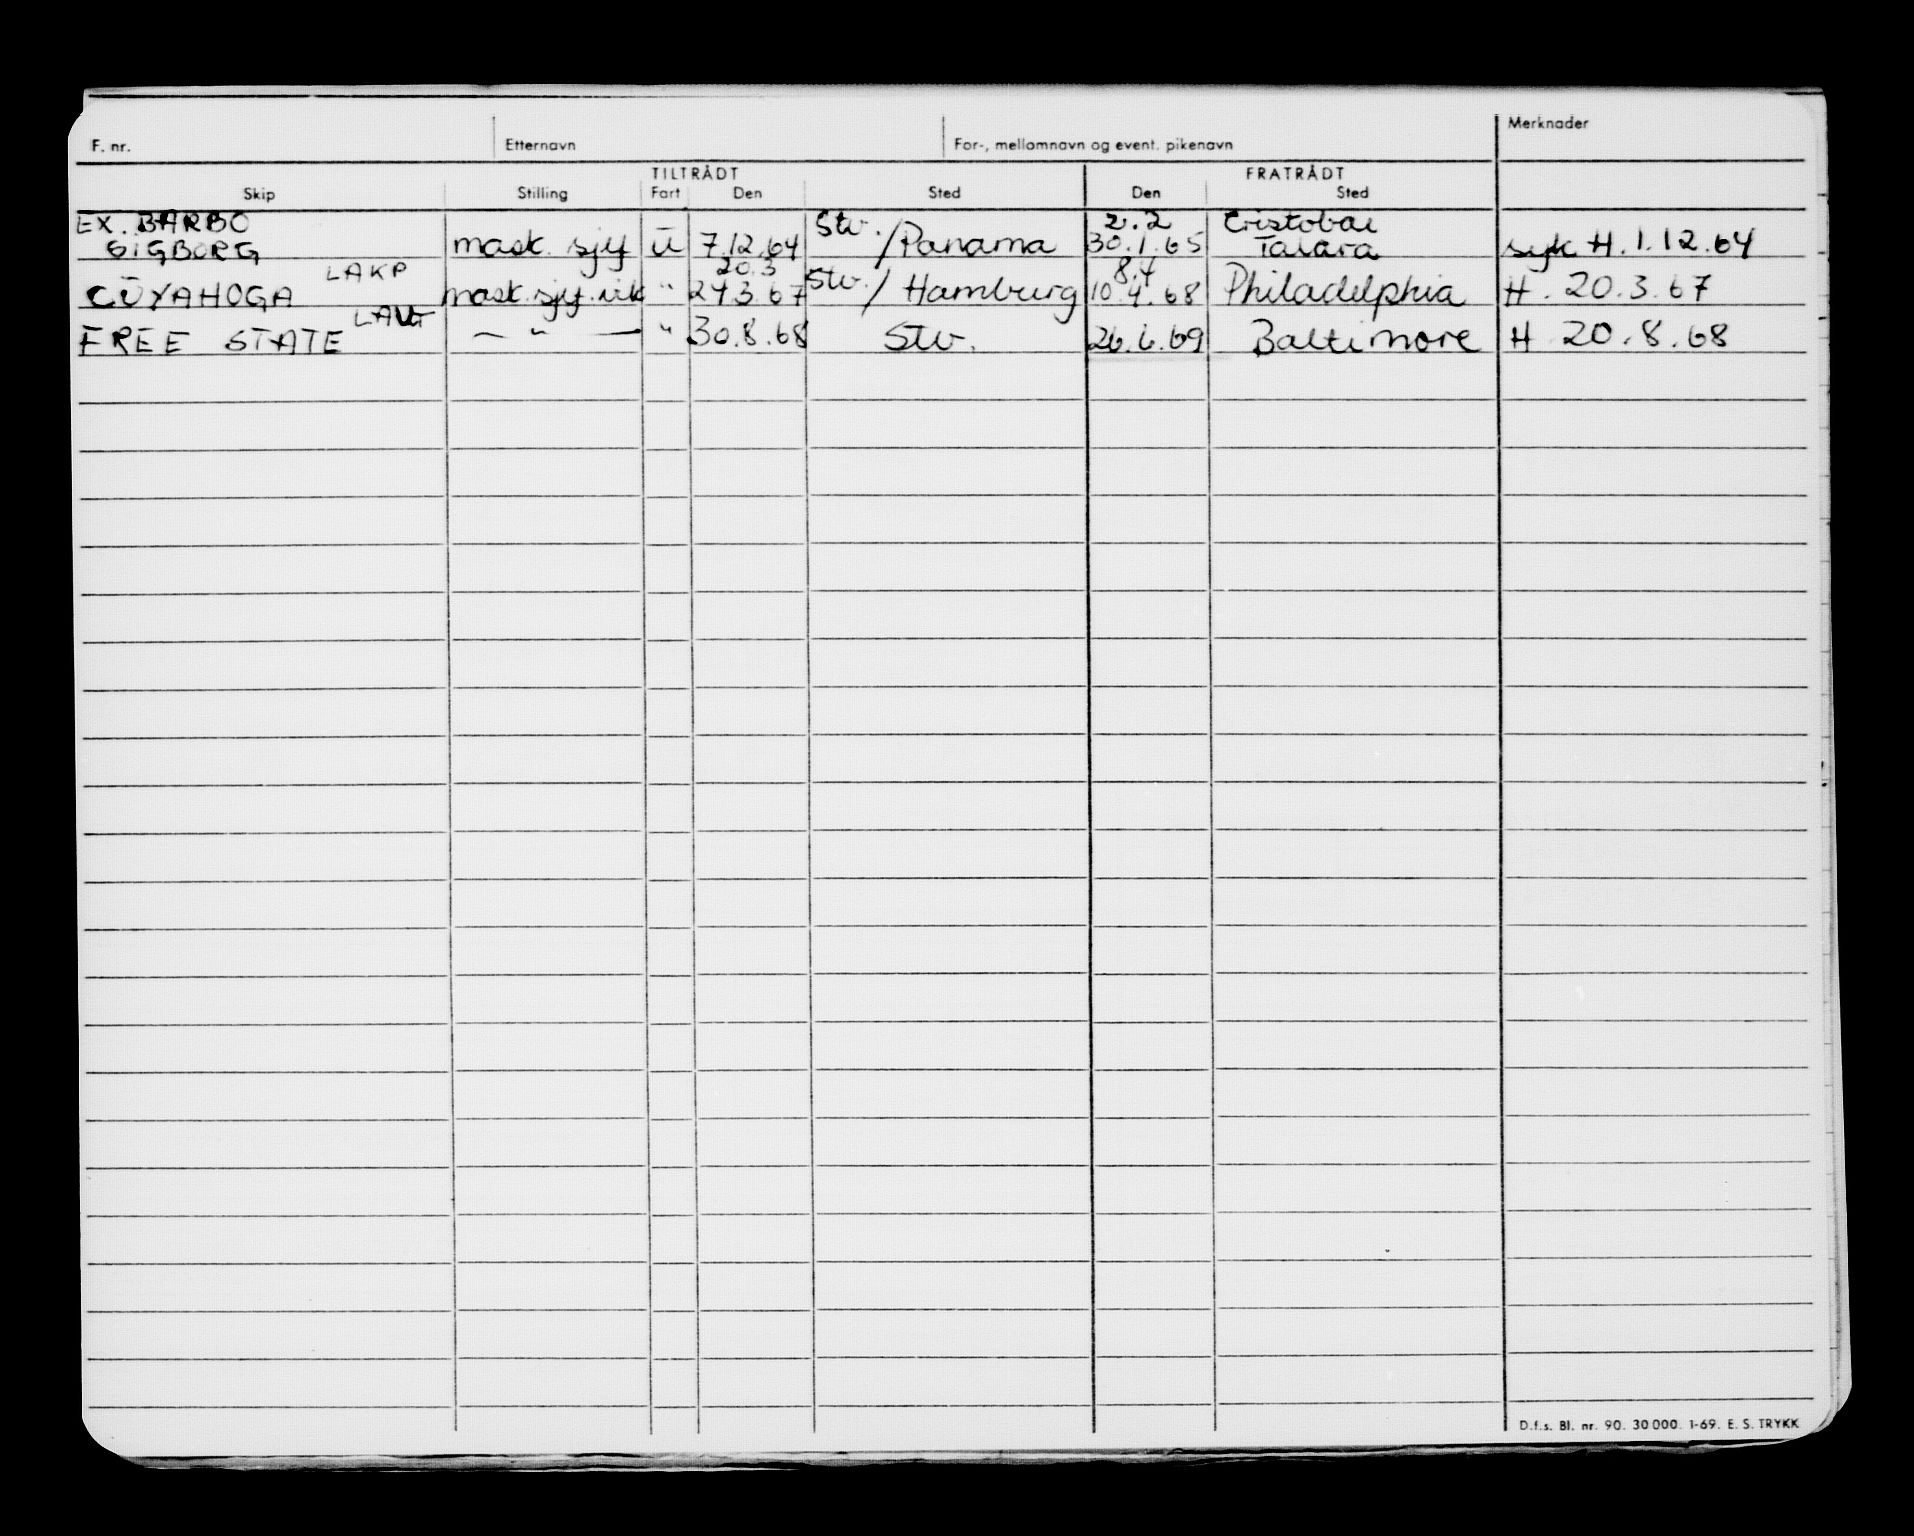 F. nr. Etternavn For-, mellomnavn og event. pikenavn Merknader
TILTRÅDT FRATRÅDT
Skip Stilling Fart Den Sted Den Sted
EX. BARBO Stv. 2.2 Cristobal
SIGBORG mask. sjef U 7.12.64 /Panama 30.1.65 Talara syk H. 1.12.64
LAKP 20.3 Stv. 8.4
CUYAHOGA mask. sjef. vik " 24.3.67 / Hamburg 10.4.68 Philadelphia H. 20.3.67
LAVT
FREE STATE — " — " 30.8.68 Stv. 26.6.69 Baltimore H 20.8.68
D.f.s. Bl. nr. 90. 30 000. 1-69. E. S. TRYKK